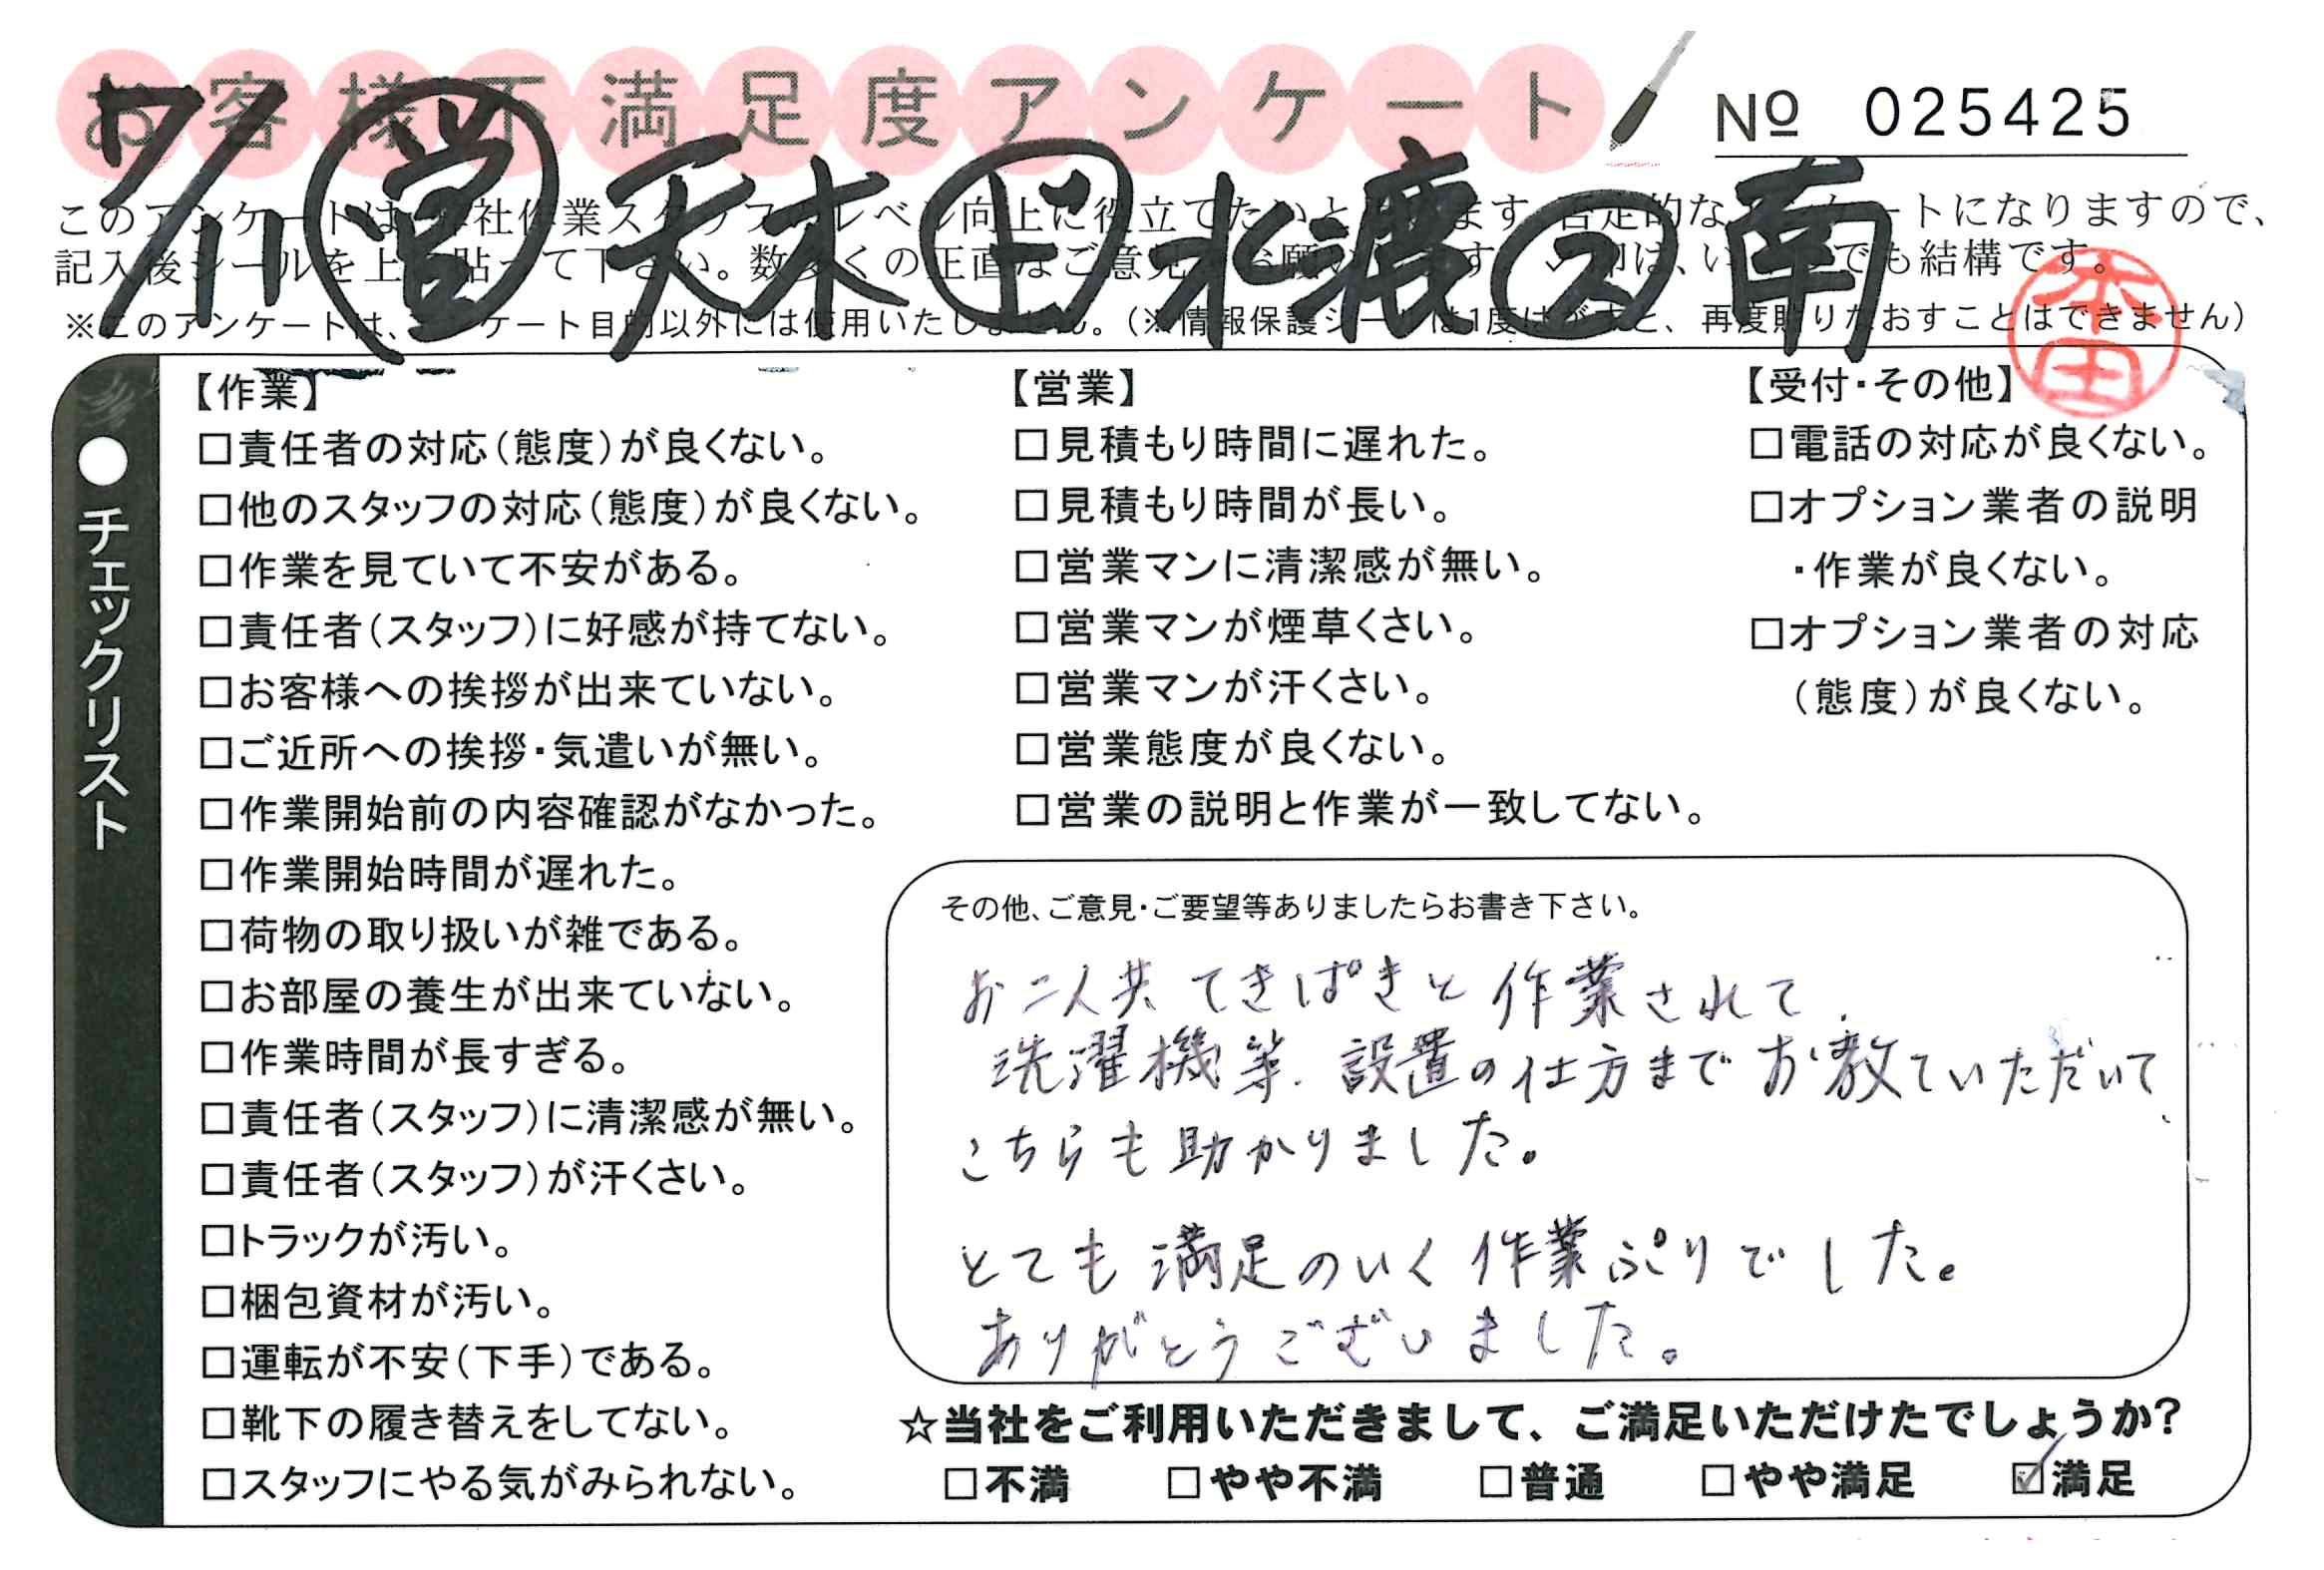 お客様不満足度アンケート
№ 025425
7/11 営 天木 ビ 水漉 ス 南
このアンケートは、社作業スタッフのレベル向上に役立てたいと ます 否定的なアンケートになりますので、
記入後シールを上に貼って下さい。数多くの正直なご意見をお願い す は、いつでも結構です。
※このアンケートは、アンケート目的以外には使用いたしません。（※情報保護シールは1度はがすと、再度貼りなおすことはできません）
本田
●チェックリスト
【作業】
□責任者の対応（態度）が良くない。
□他のスタッフの対応（態度）が良くない。
□作業を見ていて不安がある。
□責任者（スタッフ）に好感が持てない。
□お客様への挨拶が出来ていない。
□ご近所への挨拶・気遣いが無い。
□作業開始前の内容確認がなかった。
□作業開始時間が遅れた。
□荷物の取り扱いが雑である。
□お部屋の養生が出来ていない。
□作業時間が長すぎる。
□責任者（スタッフ）に清潔感が無い。
□責任者（スタッフ）が汗くさい。
□トラックが汚い。
□梱包資材が汚い。
□運転が不安（下手）である。
□靴下の履き替えをしてない。
□スタッフにやる気がみられない。
【営業】
□見積もり時間に遅れた。
□見積もり時間が長い。
□営業マンに清潔感が無い。
□営業マンが煙草くさい。
□営業マンが汗くさい。
□営業態度が良くない。
□営業の説明と作業が一致してない。
【受付・その他】
□電話の対応が良くない。
□オプション業者の説明
・作業が良くない。
□オプション業者の対応
（態度）が良くない。
その他、ご意見・ご要望等ありましたらお書き下さい。
お二人共 てきぱきと 作業されて、
洗濯機等、設置の仕方まで お教ていただいて、
こちらも助かりました。
とても満足のいく作業ぷりでした。
ありがとうございました。
☆当社をご利用いただきまして、ご満足いただけたでしょうか?
□不満 □やや不満 □普通 □やや満足 ☑満足